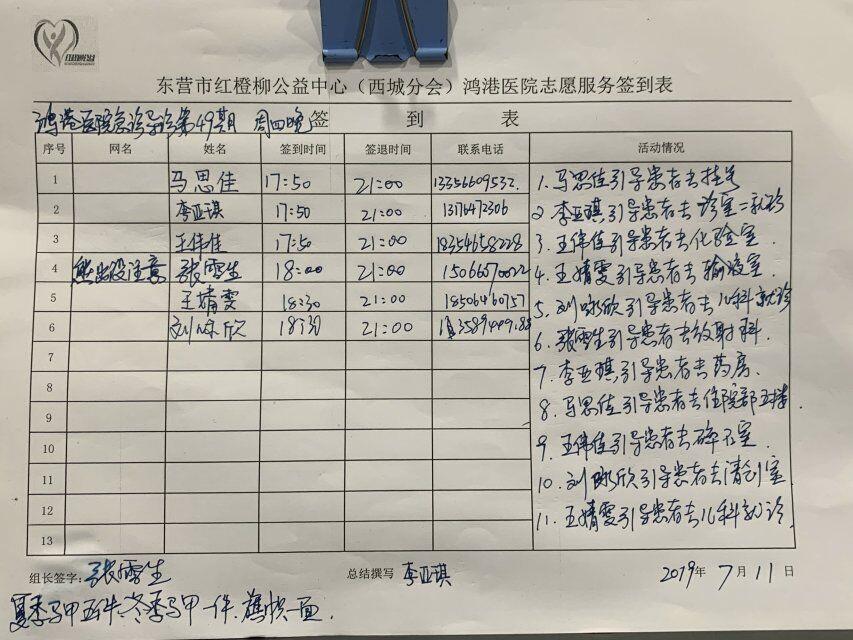 东营市红橙柳公益中心（西城分会）鸿港医院志愿服务签到表
鸿港医院急诊导诊第49期 周四晚 签 到 表
序号 网名 姓名 签到时间 签退时间 联系电话 活动情况
1 马思佳 17:50 21:00 13356609532
2 李亚琪 17:50 21:00 13176472306
3 王伟佳 17:50 21:00 18354658228
4 熊出没注意 张雪生 18:00 21:00 15066070022
5 王婧雯 18:30 21:00 18506460757
6 刘咏欣 18:30 21:00
7
8
9
10
11
12
13
1. 马思佳引导患者去挂号
2 李亚琪引导患者去诊室二就诊
3. 王伟佳引导患者去化验室.
4. 王婧雯引导患者去输液室.
5. 刘咏欣引导患者去儿科就诊
6. 张雪生引导患者去放射科.
7. 李亚琪引导患者去药房.
8. 马思佳引导患者去住院部五楼
9. 王伟佳引导患者去碎石室.
10. 刘咏欣引导患者去清创室
11. 王婧雯引导患者去儿科就诊.
组长签字：张雪生 总结撰写 李亚琪 2019年 7月11日
夏季马甲五件、冬季马甲一件. 旗帜一面.